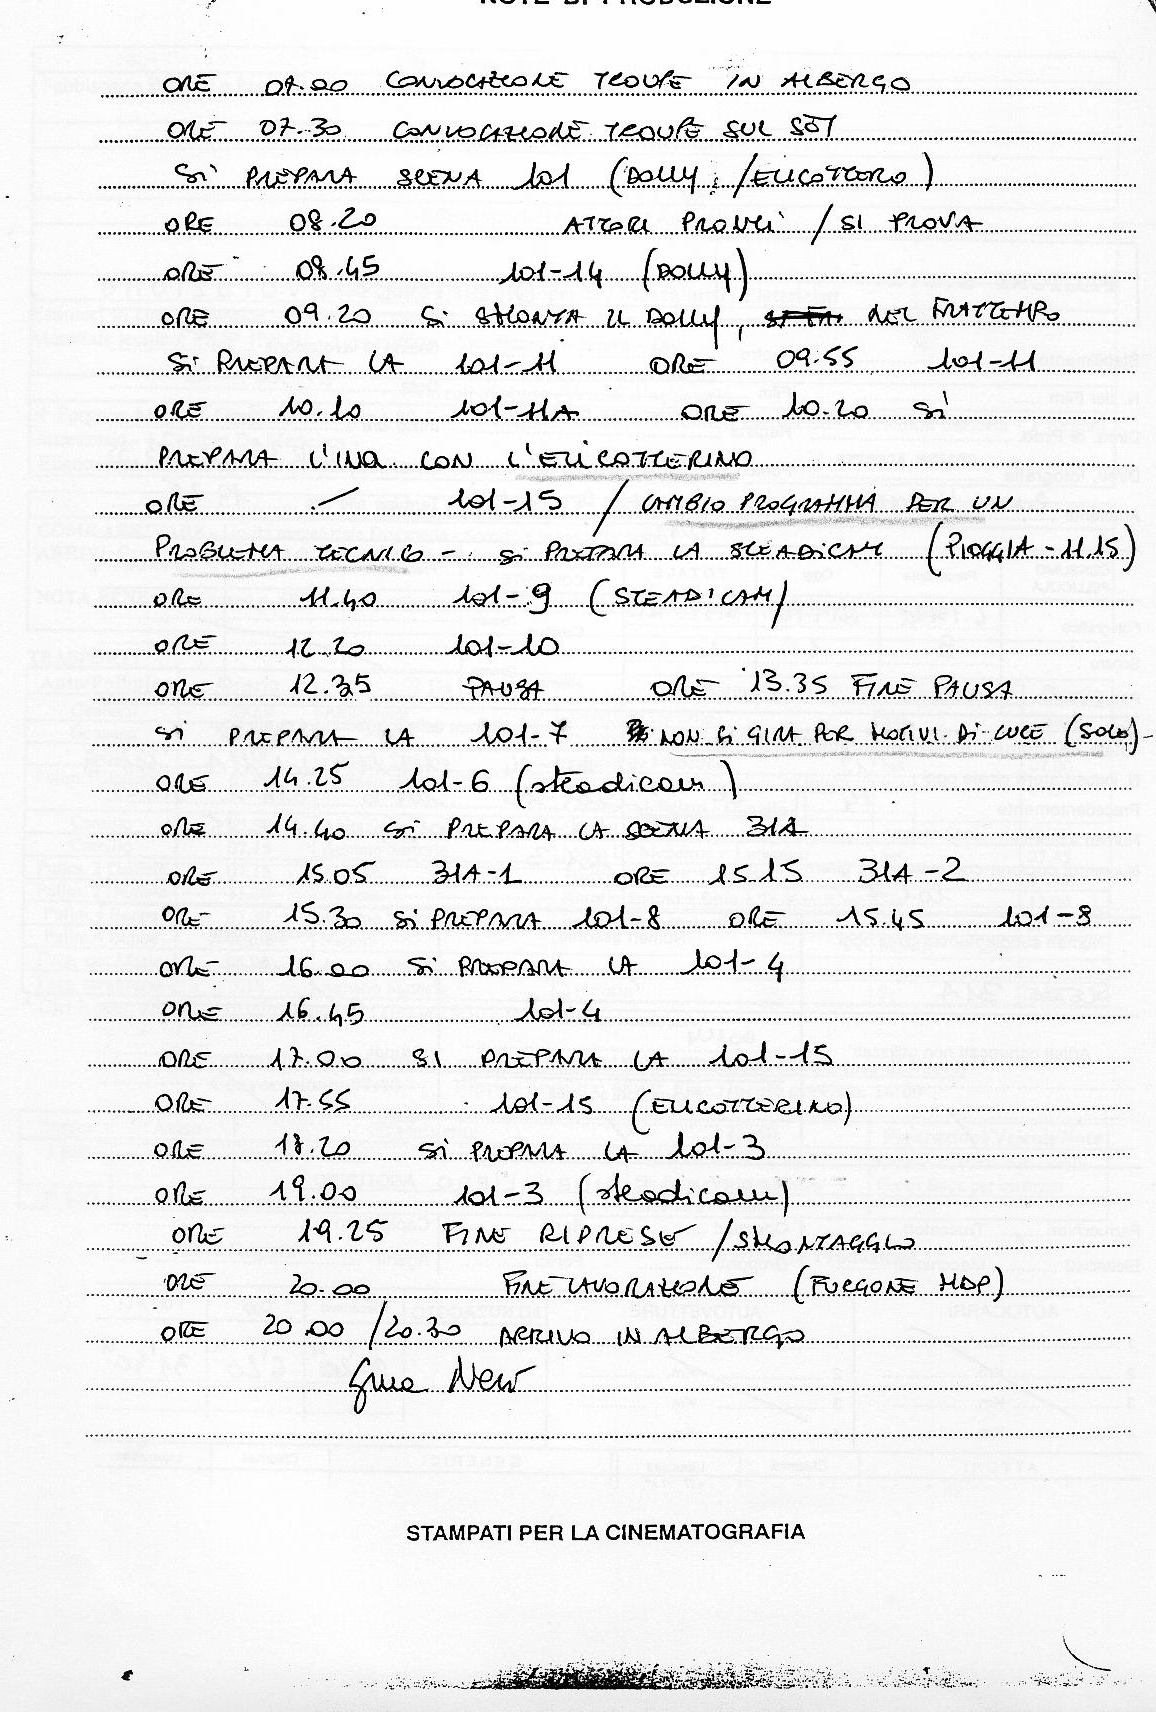 NOTE DI PRODUZIONE
ORE 07.00 CONVOCAZIONE TROUPE IN ALBERGO
ORE 07.30 CONVOCAZIONE TROUPE SUL SET
SI PREPARA SCENA 101 (DOLLY, /ELICOTTERO)
ORE 08.20 ATTORI PRONTI / SI PROVA
ORE 08.45 101-14 (DOLLY)
ORE 09.20 SI SMONTA IL DOLLY, NEL FRATTEMPO
SI PREPARA LA 101-11 ORE 09.55 101-11
ORE 10.10 101-11A ORE 10.20 SI
PREPARA L'INQ. CON L'ELICOTTERINO
ORE / 101-15 / CAMBIO PROGRAMMA PER UN
PROBLEMA TECNICO - SI PREPARA LA STEADICAM (PIOGGIA - 11.15)
ORE 11.40 101-9 (STEADICAM)
ORE 12.20 101-10
ORE 12.35 PAUSA ORE 13.35 FINE PAUSA
SI PREPARA LA 101-7 NON SI GIRA PER MOTIVI DI LUCE (SOLE) -
ORE 14.25 101-6 (steadicam)
ORE 14.40 SI PREPARA LA SCENA 31A
ORE 15.05 31A-1 ORE 15.15 31A-2
ORE 15.30 SI PREPARA 101-8 ORE 15.45 101-8
ORE 16.00 SI PREPARA LA 101-4
ORE 16.45 101-4
ORE 17.00 SI PREPARA LA 101-15
ORE 17.55 101-15 (ELICOTTERINO)
ORE 18.20 SI PREPARA LA 101-3
ORE 19.00 101-3 (steadicam)
ORE 19.25 FINE RIPRESE / SMONTAGGIO
ORE 20.00 FINE LAVORAZIONE (FURGONE MDP)
ORE 20.00 /20.30 ARRIVO IN ALBERGO
STAMPATI PER LA CINEMATOGRAFIA